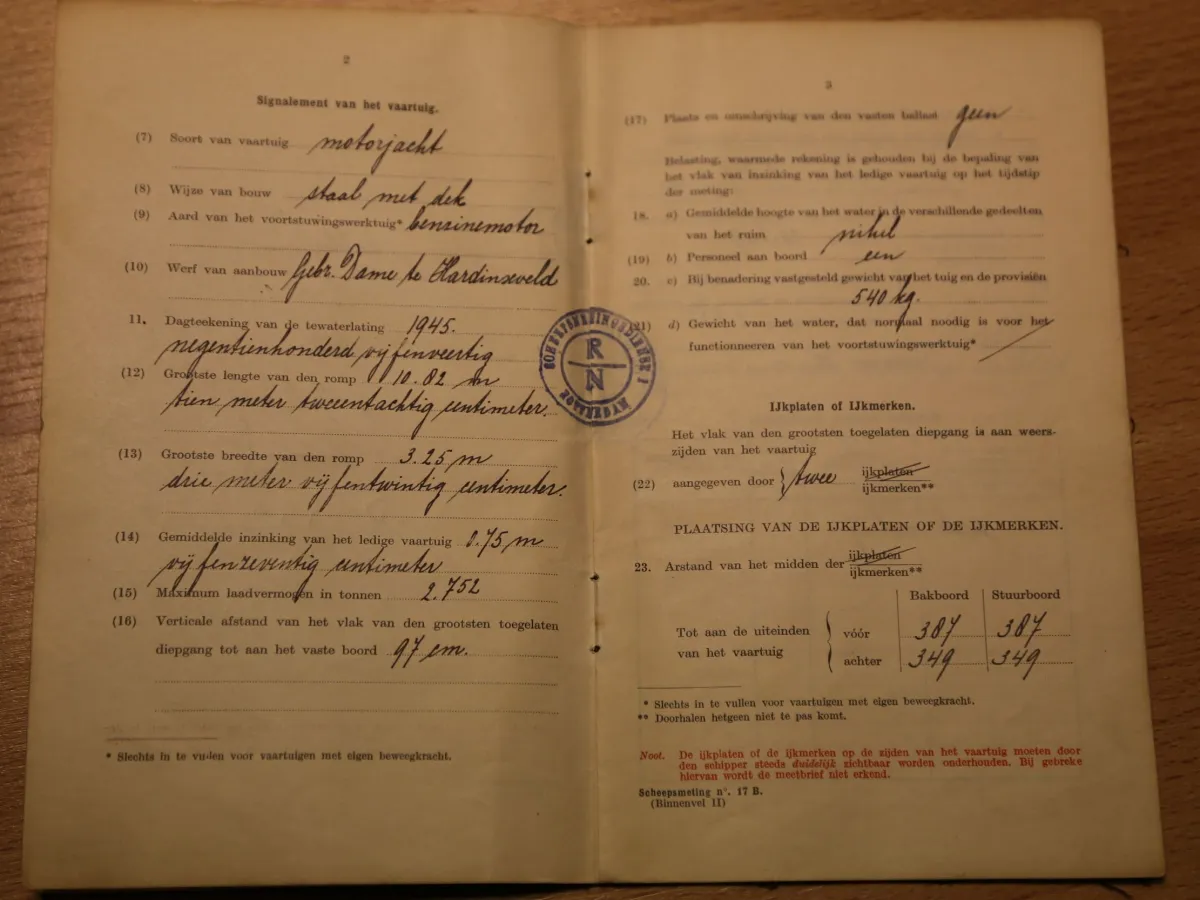 2
Signalement van het vaartuig.
(7) Soort van vaartuig motorjacht
(8) Wijze van bouw staal met dek
(9) Aard van het voortstuwingswerktuig* benzinemotor
(10) Werf van aanbouw Gebr. Dame te Hardinxveld
11. Dagteekening van de tewaterlating 1945.
negentienhonderd vijfenveertig
(12) Grootste lengte van den romp 10.82 m
tien meter tweeentachtig centimeter.
(13) Grootste breedte van den romp 3.25 m
drie meter vijfentwintig centimeter.
(14) Gemiddelde inzinking van het ledige vaartuig 0.75 m
vijfenzeventig centimeter
(15) Maximum laadvermogen in tonnen 2.752
(16) Verticale afstand van het vlak van den grootsten toegelaten
diepgang tot aan het vaste boord 97 cm.
* Slechts in te vullen voor vaartuigen met eigen beweegkracht.
R
N
3
(17) Plaats en omschrijving van den vasten ballast geen
Belasting, waarmede rekening is gehouden bij de bepaling van
het vlak van inzinking van het ledige vaartuig op het tijdstip
der meting:
18. a) Gemiddelde hoogte van het water in de verschillende gedeelten
van het ruim nihil
(19) b) Personeel aan boord een
20. c) Bij benadering vastgesteld gewicht van het tuig en de provisiën
540 kg.
(21) d) Gewicht van het water, dat normaal noodig is voor het
functionneeren van het voortstuwingswerktuig*
IJkplaten of IJkmerken.
Het vlak van den grootsten toegelaten diepgang is aan weers-
zijden van het vaartuig
(22) aangegeven door } twee ijkplaten
ijkmerken**
PLAATSING VAN DE IJKPLATEN OF DE IJKMERKEN.
23. Afstand van het midden der ijkplaten
ijkmerken**
Bakboord Stuurboord
Tot aan de uiteinden vóór 387 387
van het vaartuig achter 349 349
* Slechts in te vullen voor vaartuigen met eigen beweegkracht.
** Doorhalen hetgeen niet te pas komt.
Noot. De ijkplaten of de ijkmerken op de zijden van het vaartuig moeten door
den schipper steeds duidelijk zichtbaar worden onderhouden. Bij gebreke
hiervan wordt de meetbrief niet erkend.
Scheepsmeting n°. 17 B.
(Binnenvel II)